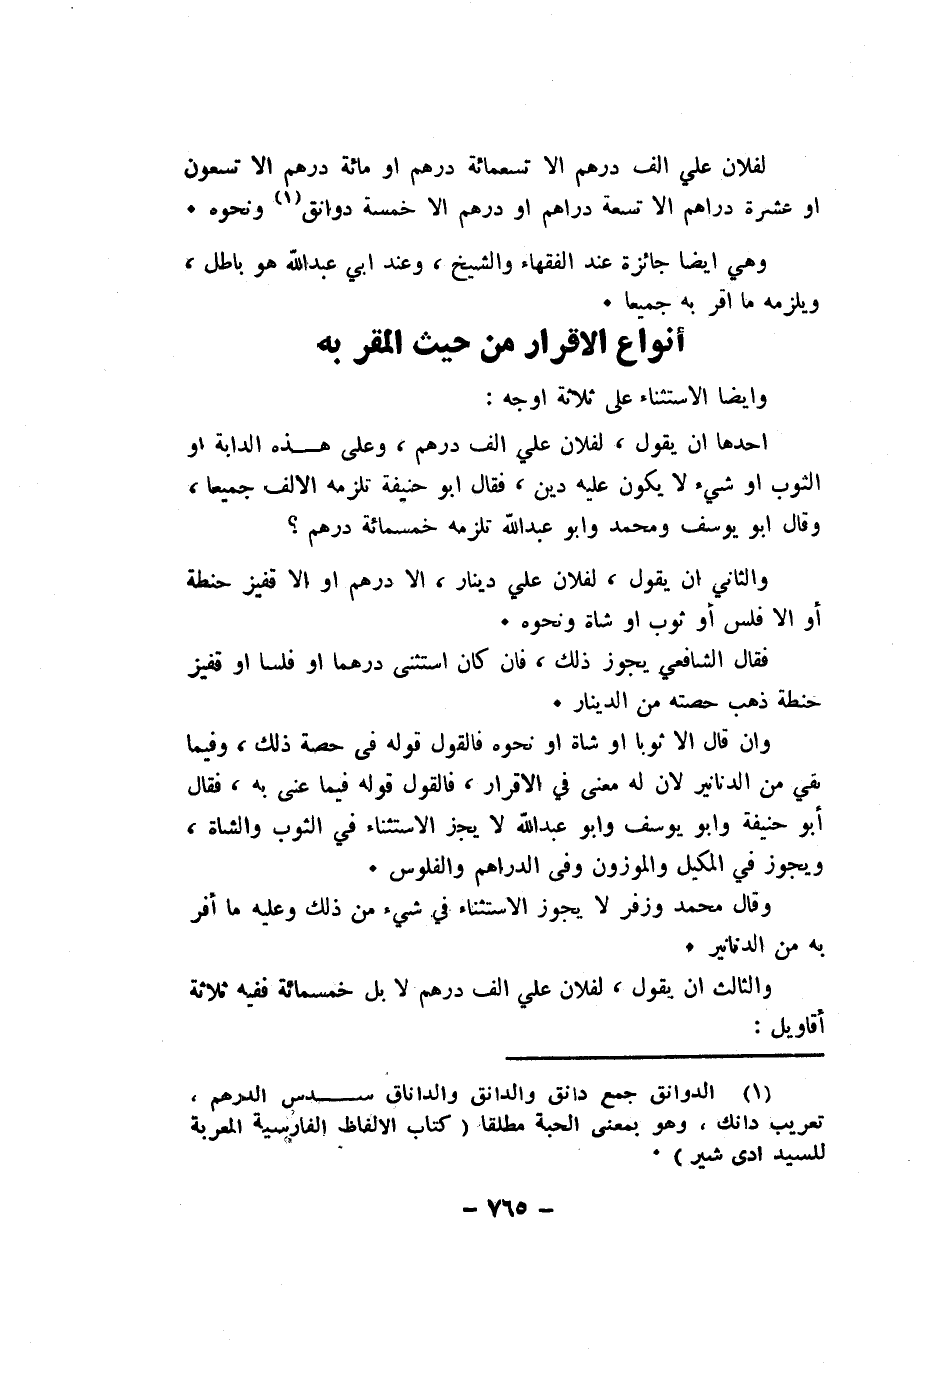 لفلان علي الف درهم الا تسعمائة درهم او مائة درهم الا تسعون
او عشرة دراهم الا تسعة دراهم او درهم الا خمسة دوانق(١) ونحوه ٠
وهي ايضا جائزة عند الفقهاء والشيخ ، وعند ابي عبدالله هو باطل ،
ويلزمه ما اقر به جميعا ٠
أنواع الاقرار من حيث المقر به
وايضا الاستثناء على ثلاثة اوجه :
احدها ان يقول ، لفلان علي الف درهم ، وعلى هـــذه الدابة او
الثوب او شيء لا يكون عليه دين ، فقال ابو حنيفة تلزمه الالف جميعا ،
وقال ابو يوسف ومحمد وابو عبدالله تلزمه خمسمائة درهم ؟
والثاني ان يقول ، لفلان علي دينار ، الا درهم او الا قفيز حنطة
أو الا فلس أو ثوب او شاة ونحوه ٠
فقال الشافعي يجوز ذلك ، فان كان استثنى درهما او فلسا او قفيز
حنطة ذهب حصته من الدينار ٠
وان قال الا ثوبا او شاة او نحوه فالقول قوله فى حصة ذلك ، وفيما
بقي من الدنانير لان له معنى في الاقرار ، فالقول قوله فيما عنى به ، فقال
أبو حنيفة وابو يوسف وابو عبدالله لا يجز الاستثناء في الثوب والشاة ،
ويجوز في المكيل والموزون وفى الدراهم والفلوس ٠
وقال محمد وزفر لا يجوز الاستثناء في شيء من ذلك وعليه ما أقر
به من الدنانير ٠
والثالث ان يقول ، لفلان علي الف درهم لا بل خمسمائة ففيه ثلاثة
أقاويل :
(١) الدوانق جمع دانق والدانق والداناق ســـدس الدرهم ،
تعريب دانك ، وهو بمعنى الحبة مطلقا ( كتاب الالفاظ الفارسية المعربة
للسيد ادى شير ) ٠
- ٧٦٥ -